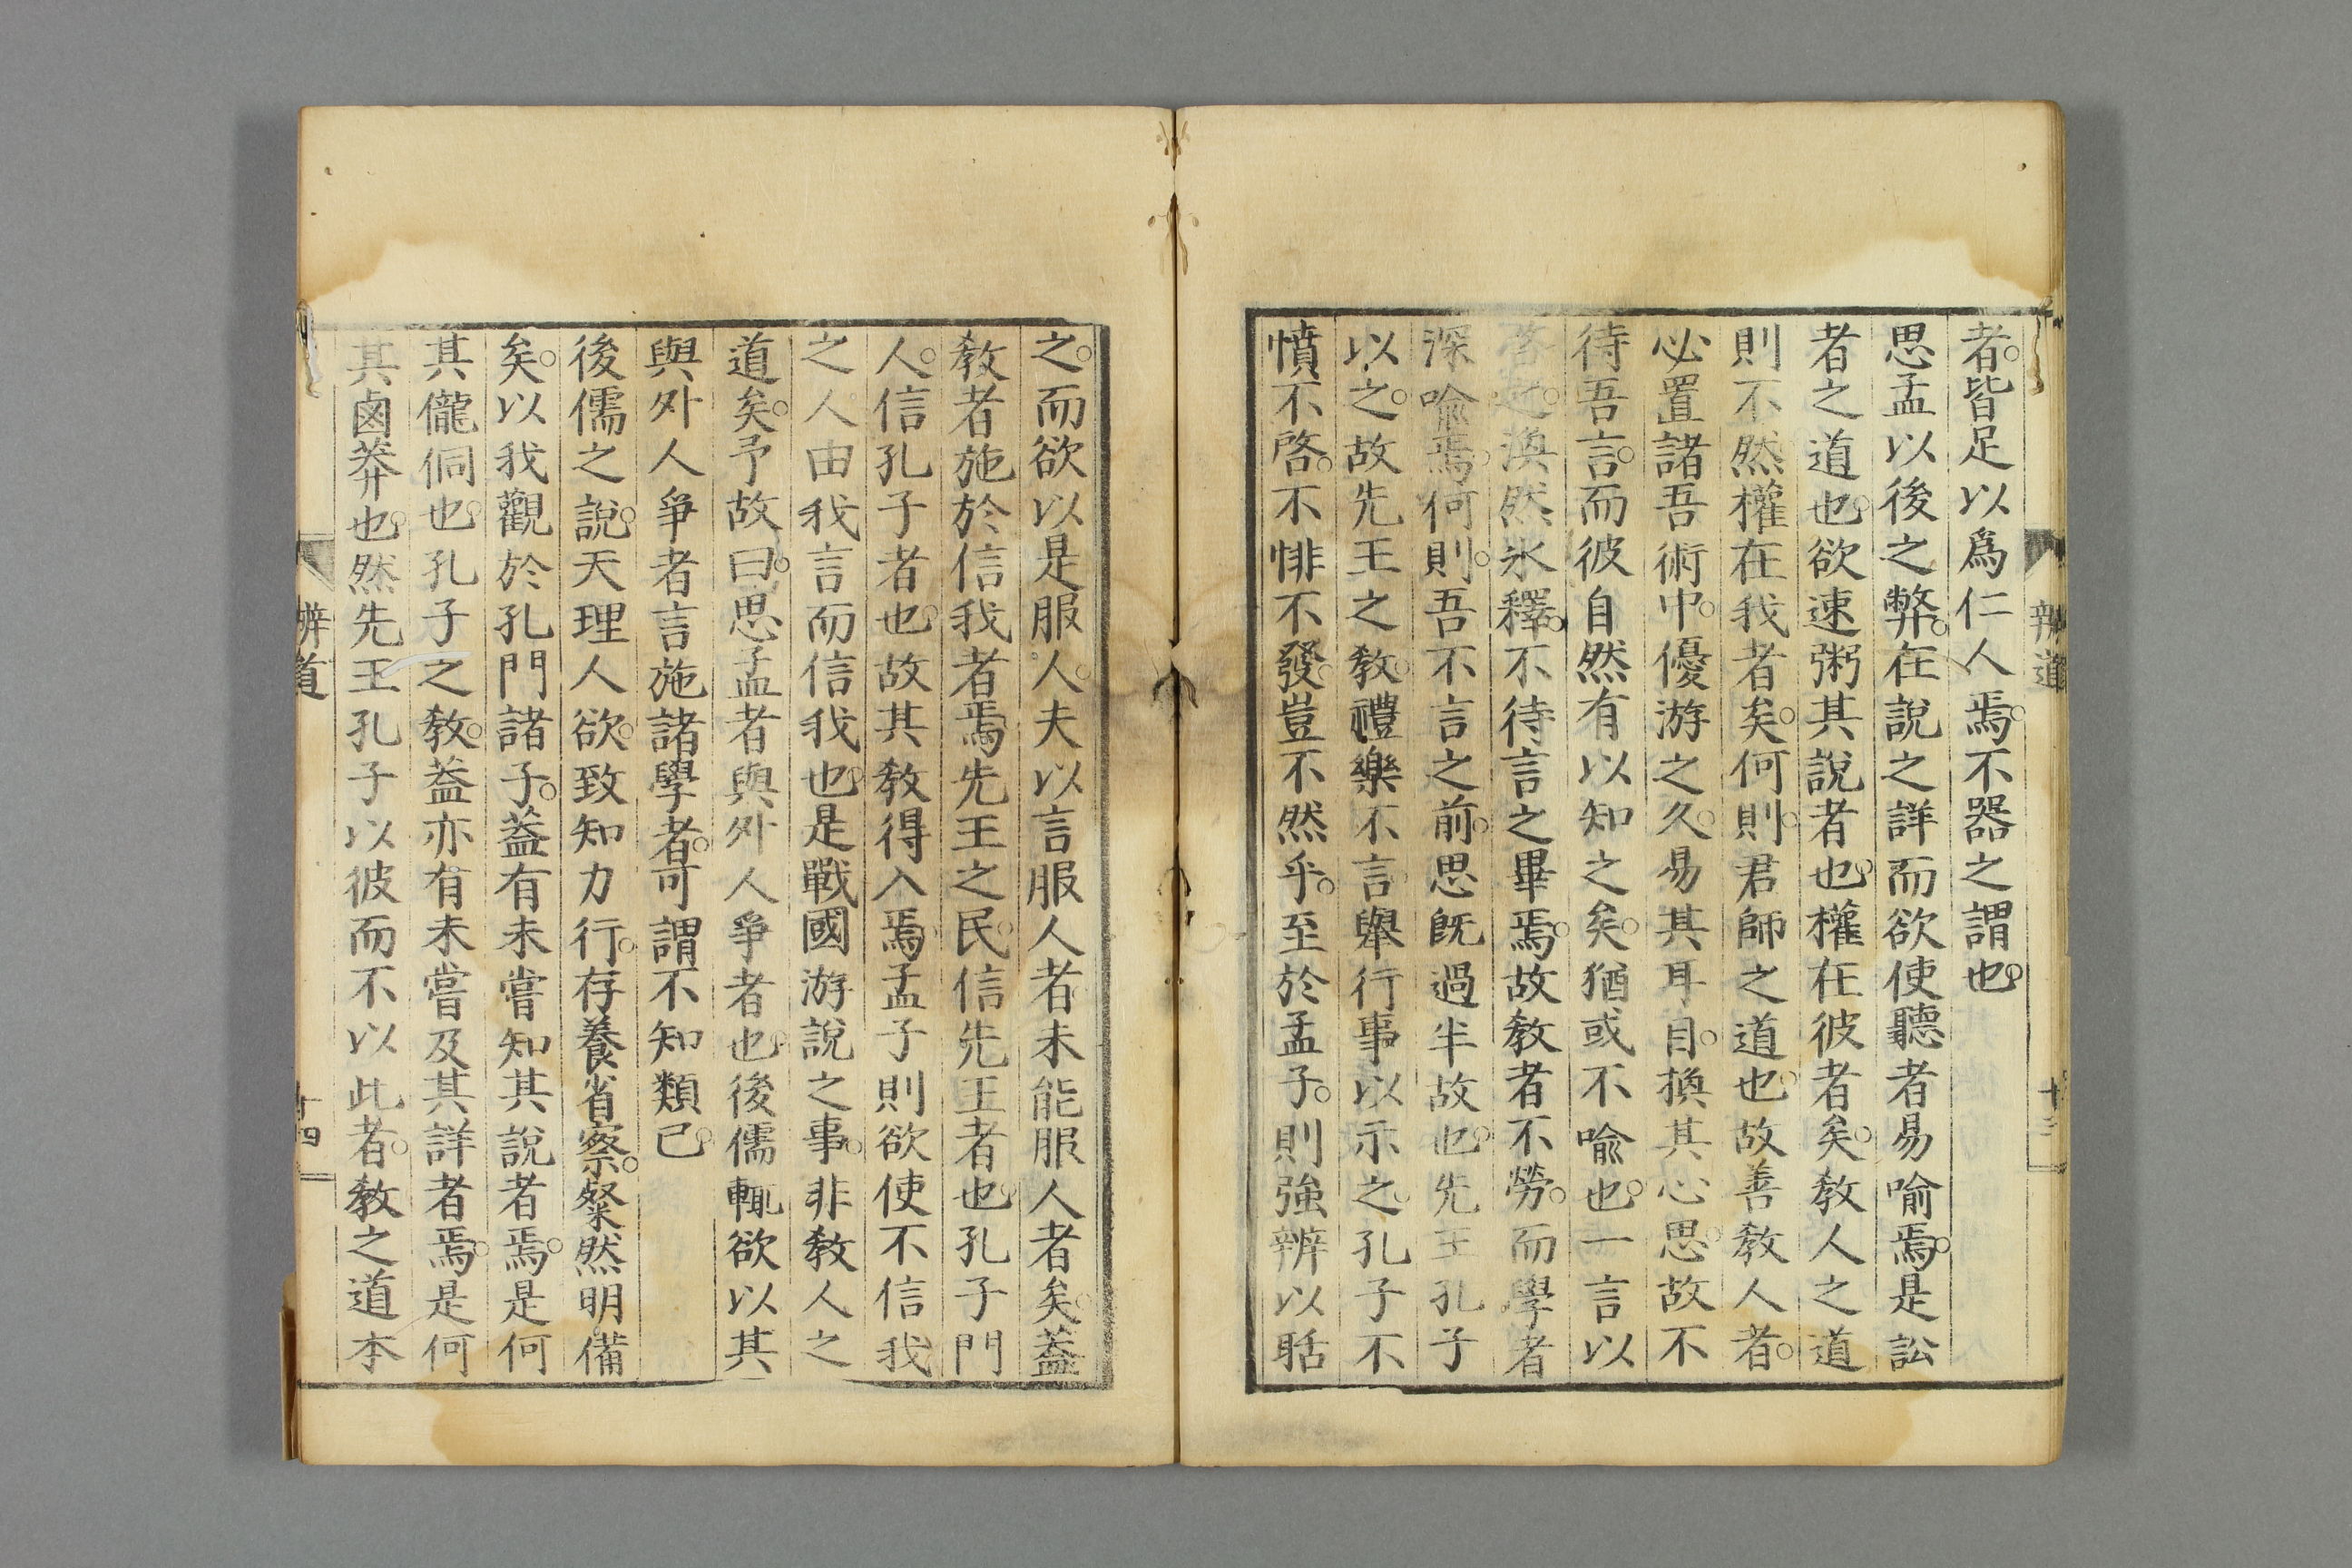 辨道
十三
者。皆足以爲仁人焉。不器之謂也。
思孟以後之弊。在說之詳而欲使聽者易喻焉。是訟
者之道也。欲速粥其說者也。權在彼者矣。敎人之道
則不然權在我者矣。何則。君師之道也。故善敎人者。
必置諸吾術中。優游之久。易其耳目。換其心思。故不
待吾言。而彼自然有以知之矣。猶或不喻也。一言以
啓之。渙然氷釋。不待言之畢焉。故敎者不勞。而學者
深喩焉。何則。吾不言之前。思既過半故也。先王孔子
以之。故先王之敎。禮樂不言。舉行事以示之。孔子不
憤不啓。不悱不發。豈不然乎。至於孟子。則強辨以聒
之。而欲以是服人。夫以言服人者。未能服人者矣。蓋
敎者施於信我者焉。先王之民。信先王者也。孔子門
人。信孔子者也。故其敎得入焉。孟子則欲使不信我
之人由我言而信我也。是戰國游說之事。非敎人之
道矣。予故曰。思孟者與外人爭者也。後儒輒欲以其
與外人爭者言施諸學者。可謂不知類已。
後儒之說。天理人欲。致知力行。存養省察。粲然明備
矣。以我觀於孔門諸子。蓋有未嘗知其說者焉。是何
其儱侗也。孔子之敎。蓋亦有未嘗及其詳者焉。是何
其鹵莽也。然先王孔子以彼而不以此者。敎之道本
辨道
十四